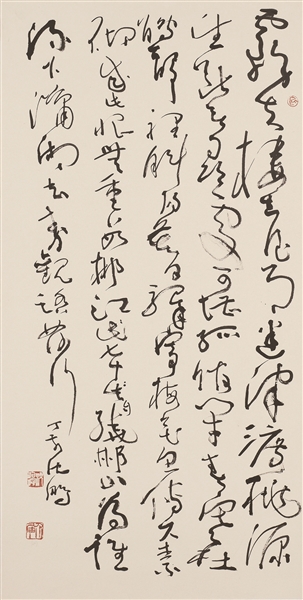 霧失樓台月迷津渡桃源
望斷無尋處可堪孤館閉春寒杜
鵑聲裡斜陽暮驛寄梅花魚傳尺素
砌成此恨無重數郴江幸自繞郴山為誰
流下瀟湘去秦觀踏莎行
丁亥沈鵬